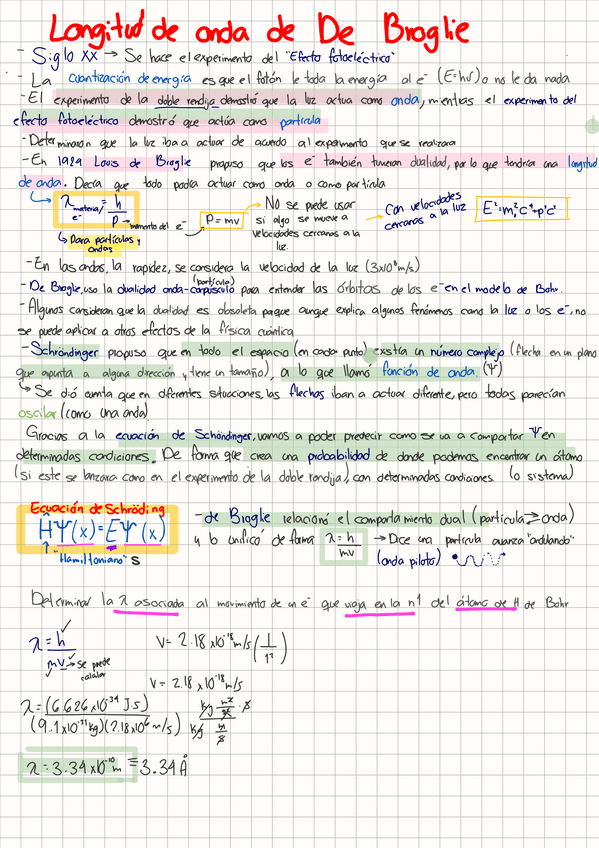 Longitud de onda de De Broglie
- Siglo XX → Se hace el experimento del "Efecto fotoeléctrico"
- La cuantización de energía es que el fotón le da toda la energía al e⁻ (E=hν) o no le da nada
- El experimento de la doble rendija demostró que la luz actua como onda, mientras el experimento del
efecto fotoeléctrico demostró que actúa como partícula
- Determinaron que la luz iba a actuar de acuerdo al experimento que se realizara
- En 1924 Louis de Broglie propuso que los e⁻ también tuvieran dualidad, por lo que tendría una longitud
de onda. Decía que todo podía actuar como onda o como partícula
λ material/e⁻ = h/P → momento del e⁻
↳ Para partículas y ondas
P = mv
→ No se puede usar
si algo se mueve a
velocidades cercanas a la
luz.
→ Con velocidades
cercanas a la luz
E² = m₀²c⁴ + p²c²
- En las ondas, la rapidez, se considera la velocidad de la luz (3x10⁸ m/s)
- De Broglie, uso la dualidad onda-corpúsculo (partícula) para entender las órbitas de los e⁻ en el modelo de Bohr.
- Algunos consideran que la dualidad es obsoleta porque aunque explica algunos fenómenos como la luz o los e⁻, no
se puede aplicar a otros efectos de la física cuántica
- Schröndinger propuso que en todo el espacio (en cada punto) existía un número complejo (flecha en un plano
que apunta a alguna dirección y tiene un tamaño), a lo que llamó función de onda (Ψ)
↳ Se dió cuenta que en diferentes situaciones, las flechas iban a actuar diferente, pero todas parecían
oscilar (como una onda)
Gracias a la ecuación de Schöndinger, vamos a poder predecir como se va a comportar Ψ en
determinadas condiciones. De forma que crea una probabilidad de donde podemos encontrar un átomo
(si este se lanzara como en el experimento de la doble rendija), con determinadas condiciones (o sistema)
Ecuación de Schröding
ĤΨ(x) = EΨ(x)
↑ "Hamiltoniano" s
- de Broglie relacionó el comportamiento dual (partícula ⇄ onda)
y lo unificó de forma λ = h/mv → Dice una partícula avanza "ondulando"
(onda piloto)
Determinar la λ asociada al movimiento de un e⁻ que viaja en la n1 del átomo de H de Bohr
λ = h/mv → se puede calcular
V = 2.18 x10⁻¹⁸ m/s (1/1²)
V = 2.18 x 10⁻¹⁸ m/s
λ = (6.626x10⁻³⁴ J·s)/(9.1x10⁻³¹ kg)(2.18x10⁶ m/s) kg m²/s² · s / kg m/s
λ = 3.34x10⁻¹⁰ m ≡ 3.34 Å